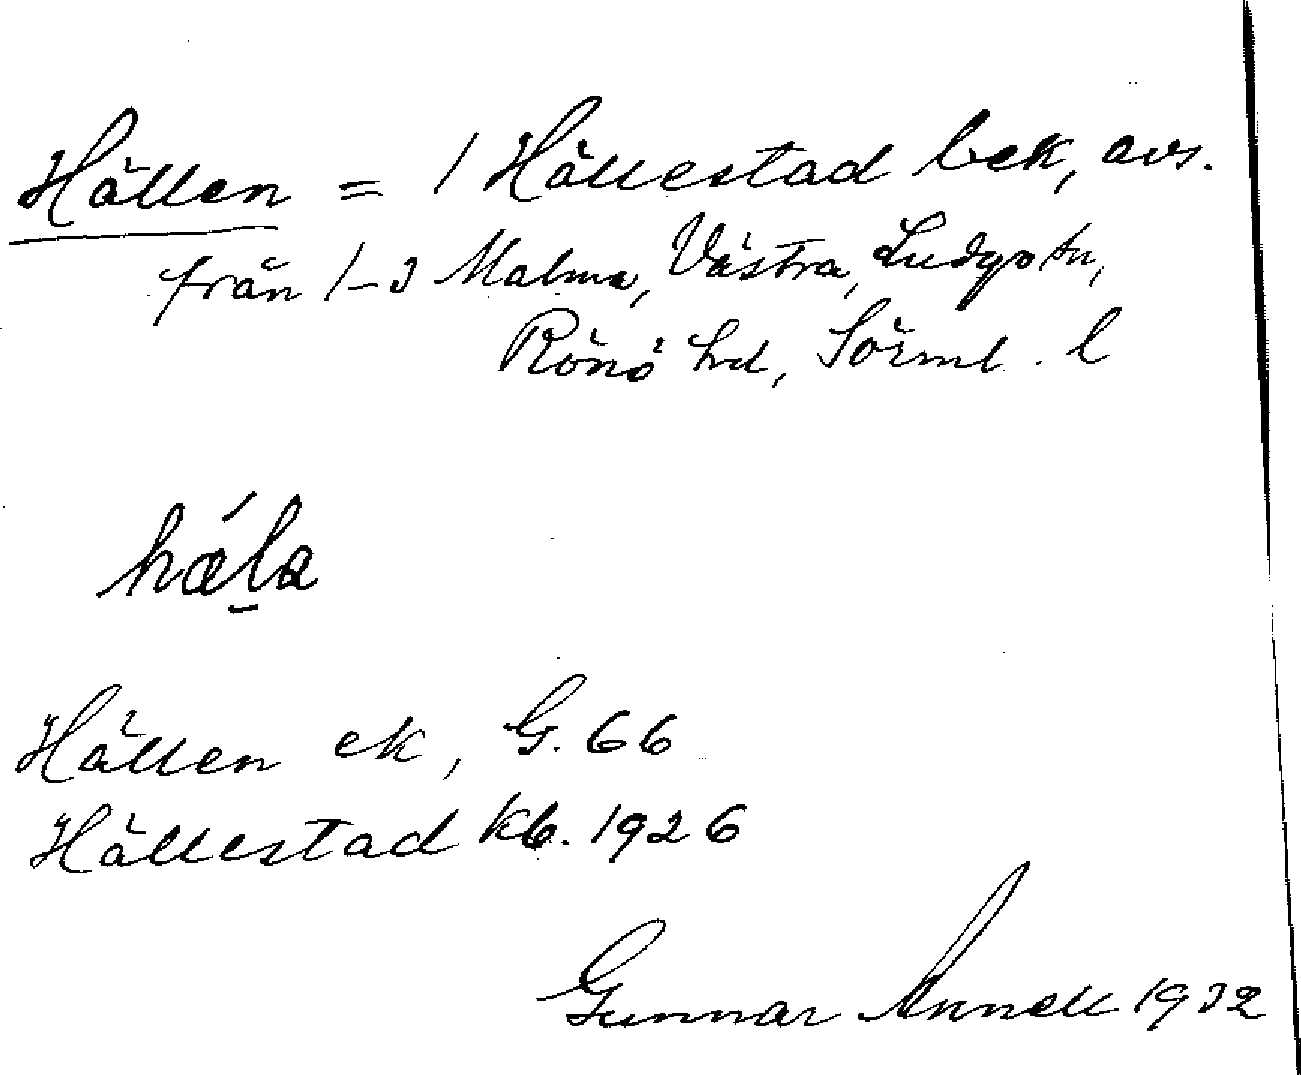 Hällen = 1 Hällestad bek, avs.
från 1-3 Malma, Västra, Ludgo sn,
Rönö hd, Sörml. l
hæ´la
Hällen ek, G. 66
Hällestad kb. 1926
Gunnar Annell 1932